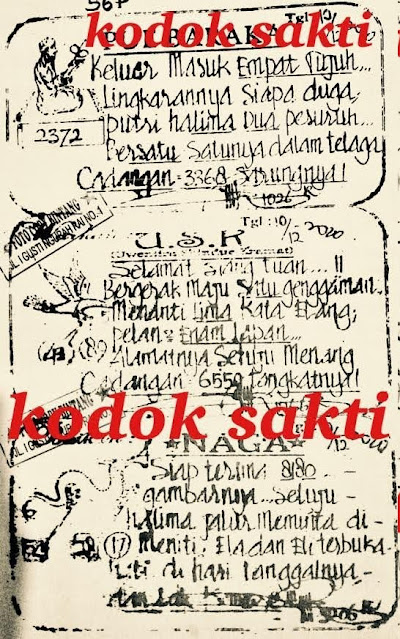 SGP
kodok sakti
Tgl : 10/12 2020
Keluar Masuk Empat Tujuh...
Lingkarannya Siapa duga,
Putri halima Dua pesuruh...
Bersatu Satunya dalam telaga
2372
Cadangan = 3368 Sarungnya!
1026
JL. I GUSTI NGURAH RAI NO. 1
Tgl : 10/12 2020
U.S.K
Selamat Siang Tuan...!!
Bergerak Maju Satu genggaman...
Menanti Lima Kata Erang,
pelan = Enam Lapan...
Alamatnya Seribu Menang
Cadangan 6559 Tongkatnya!
kodok sakti
12 2020
NAGA
Siap terima 8180. -
gambarnya Selugu -
halima jalur Meminta di -
17 Meniti, Ela dan Eli terbuka.
Titi di hari Tanggalnya -